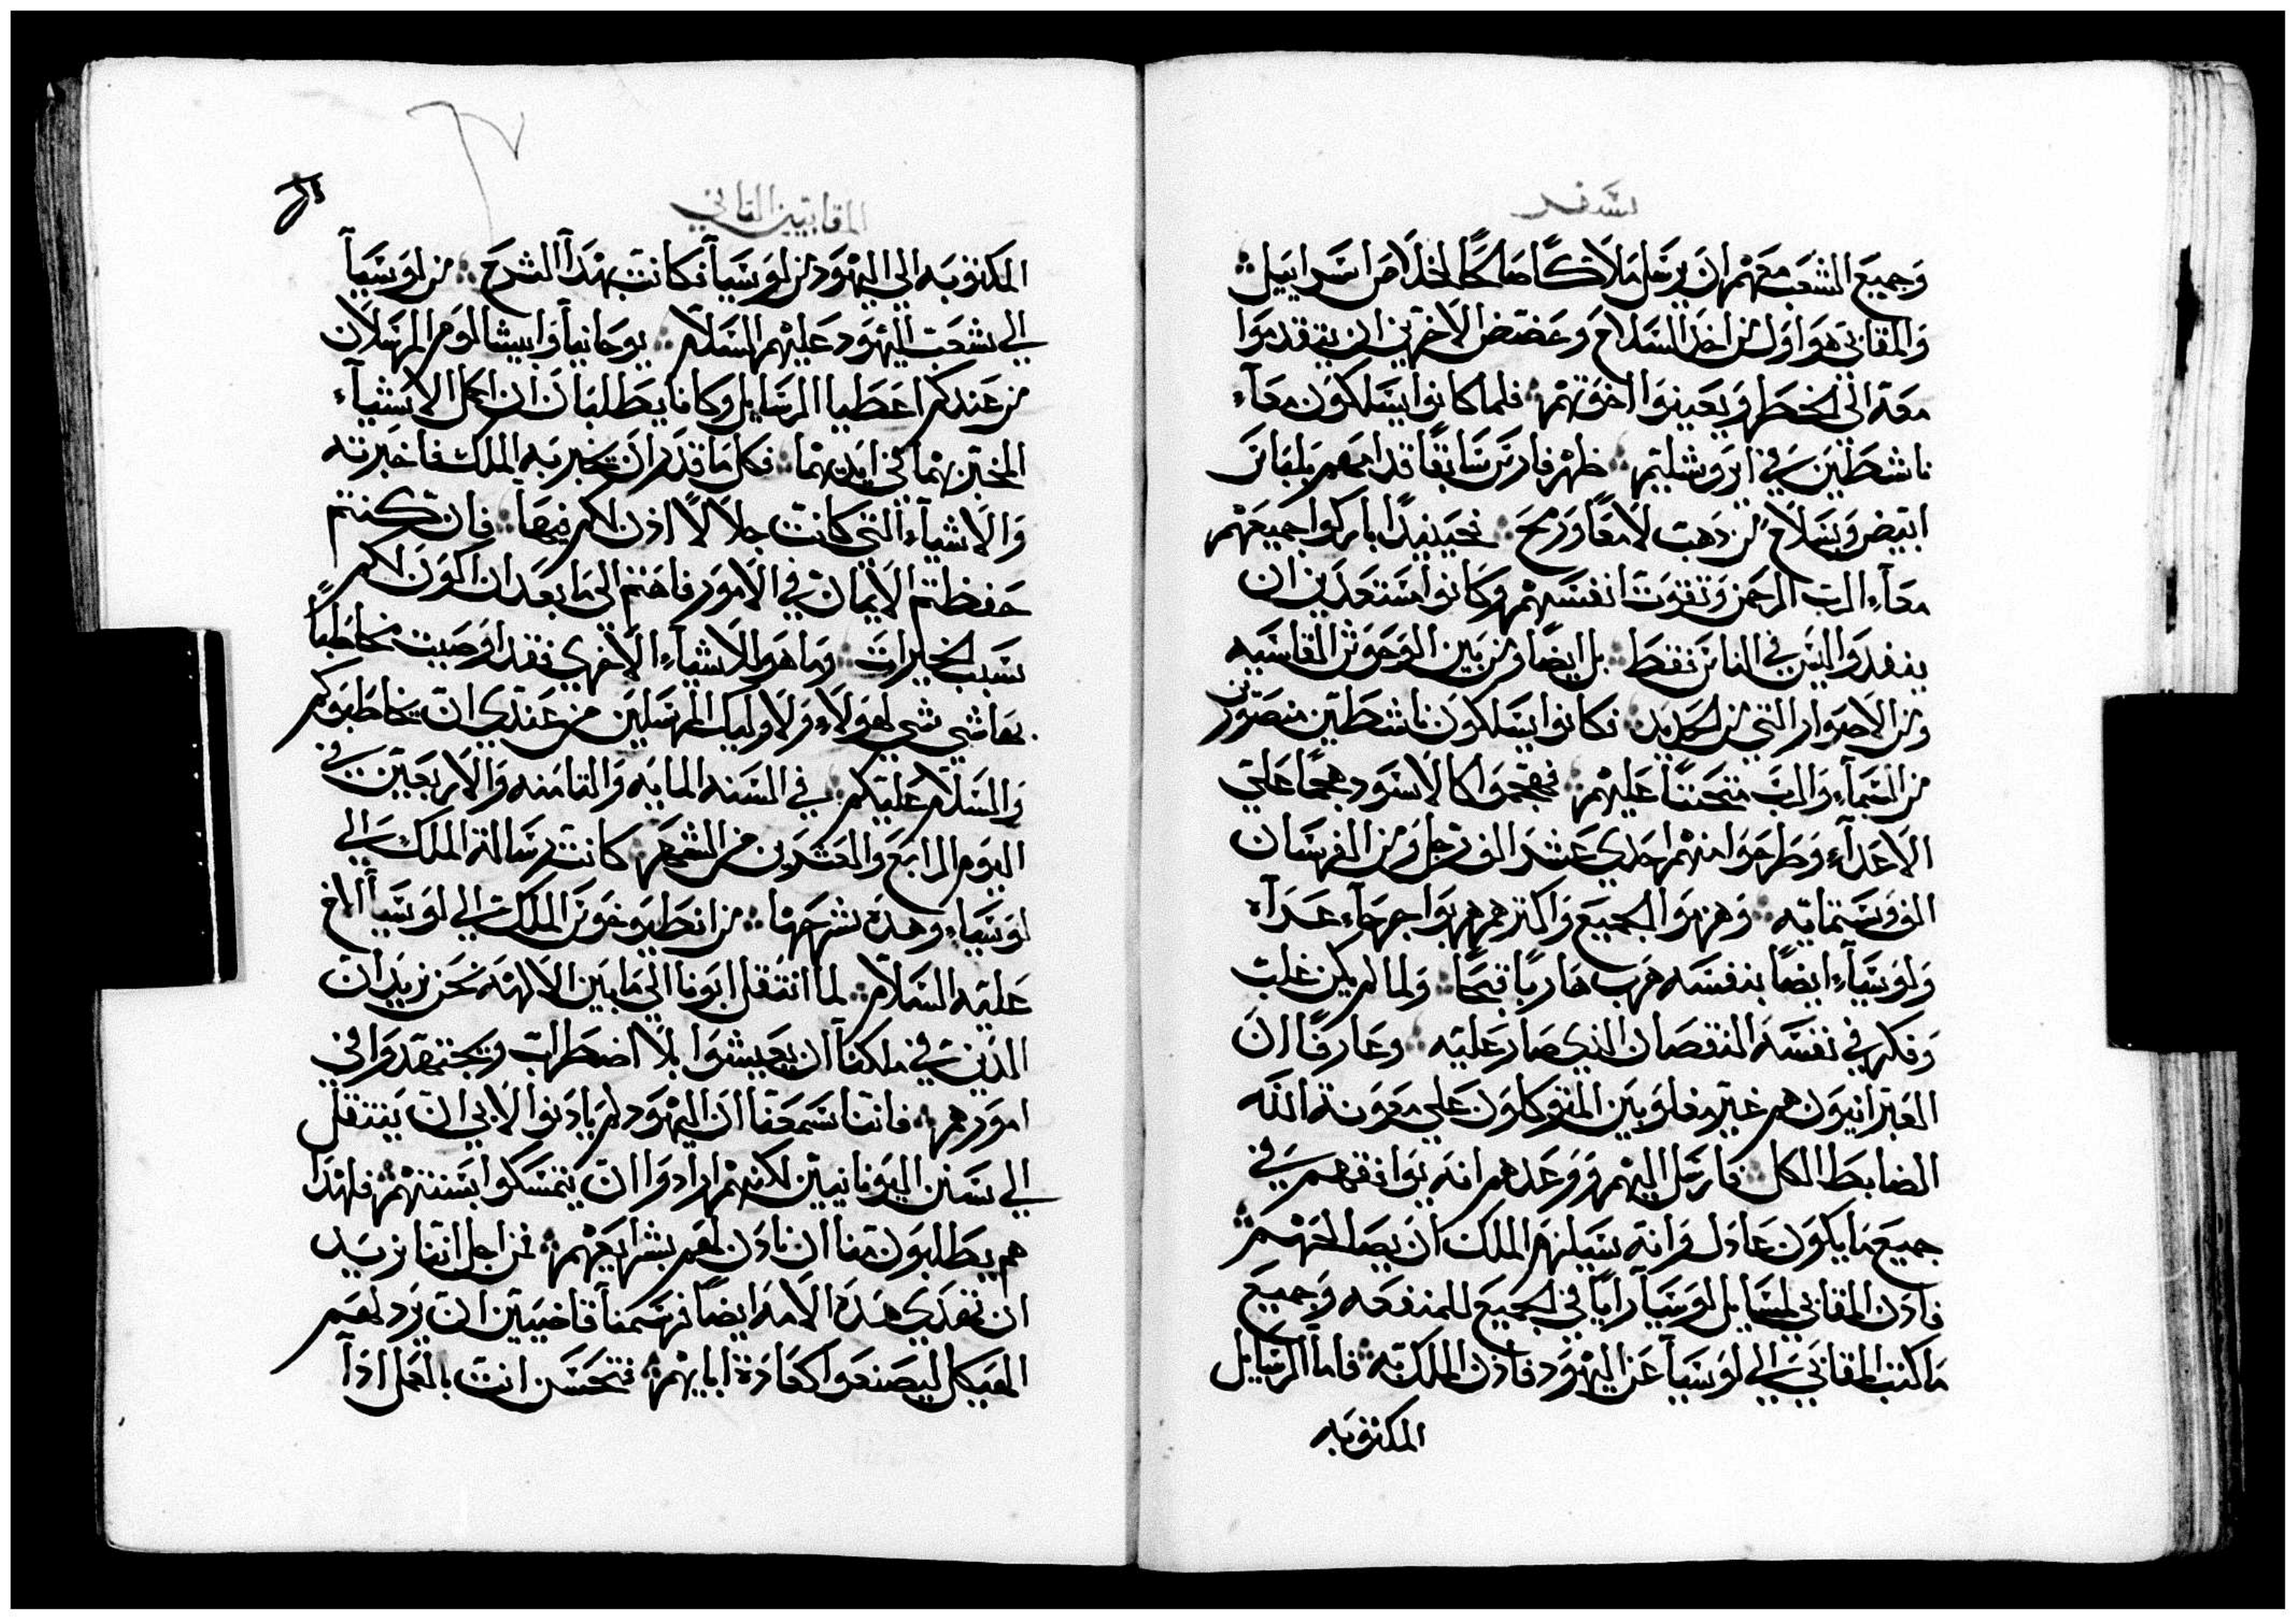 سفر
وجميع الشعب معهم ان يرسل ملاكًا صالحًا لخلاص اسراييل
والمقابي هو اول من اخذ السلاح وعضض الاخرين ان يتقدموا
معه الى الخطر ويعينوا اخوتهم فلما كانوا يسلكون معآء
ناشطين في ايروشليم ظهر فارس سابقًا قدامهم بلباس
ابيض وبسلاح من دهب لامعًا ورمح فحينيدًا باركوا جميعهم
معآء الرب الرحمن وتقوت انفسهم وكانوا مستعدين ان
ينفدوا ليس في الناس فقط بل ايضًا ومن بين الوحوش القاسيه
ومن الاصوار التي من الحديد فكانوا يسلكون ناشطين منصورين
من السمآء والرب متحننًا عليهم فهجموا كالاسود هجمًا على
الاعدآء وطرحوا منهم احدى عشر الف رجل ومن الفرسان
الف وستمايه وهزموا الجميع واكترهم هربوا جرحآء عدآه
ولوسيآء ايضًا بنفسه هرب هاربًا قبحًا ولما لم يكن غلب
وفكر في نفسه النقصان الذي صار عليه وعارفًا ان
العبرانيون هم غير مغلوبين المتوكلون على معونة الله
الضابط الكل فارسل اليهم ووعدهم انه يوافقهم في
جميع ما يكون عادل وانه سيلزم الملك ان يصالحهم
فادن المقابي لمسايل لوسيآ رايًا في الجميع للمنفعه وجميع
ما كتب المقابي الى لوسيآ عن اليهود فاذن الملك به فاما الرسايل
المكتوبه
المقابيين التاني
المكتوبه الى اليهود من لوسيآ فكانت بهدآ الشرح من لوسيآ
الى شعب اليهود عليهم السلام يوحانيآ وابيشالوم المرسلان
من عندكم اعطيا الرسايل وكانا يطلبان ان اكمل الاشيآء
المخبر بهما في ايديهما فكل ما قدر ان تخبر به الملك فاخبرته
والاشيآء التي كانت جلالًا اذن لكم فيها فان كنتم
حفظتم الايمان في الامور فاهتم الى ما بعد ان اكون لكم
سبب الخيرات وما هو للاشيآء الاخرى فقد اوصيت مخاطبًا
بها شي شي لهولآء ولاوليك المرسلين من عندي ان يخاطبوكم
والسلام عليكم في السنه المايه والتامنه والاربعين في
اليوم الرابع والعشرين من الشهر كانت رسالة الملك الى
لوسيآء وهذه شرحها من انطيوخوس الملك الى لوسيآ الاخ
عليه السلام لما انتقل ابونا الى ما بين الالهه نحن نريد ان
الذين في ملكنا ان يعيشوا بلا اضطراب ويجتهدوا في
امورهم فاننا سمعنا ان اليهود لم يادنوا لابي ان ينتقل
الى سنن اليونانيين لكنهم ارادوا ان يتمسكوا بسنتهم فلهذا
هم يطلبون منا ان نادن لهم بشرايعهم فمن اجل اننا نريد
ان تهدي هذه الامه ايضًا فرسمنا قاضيين ان يرد لهم
الهيكل ليصنعوا كعادة ابايهم فتحسن انت بالعمل اذآ